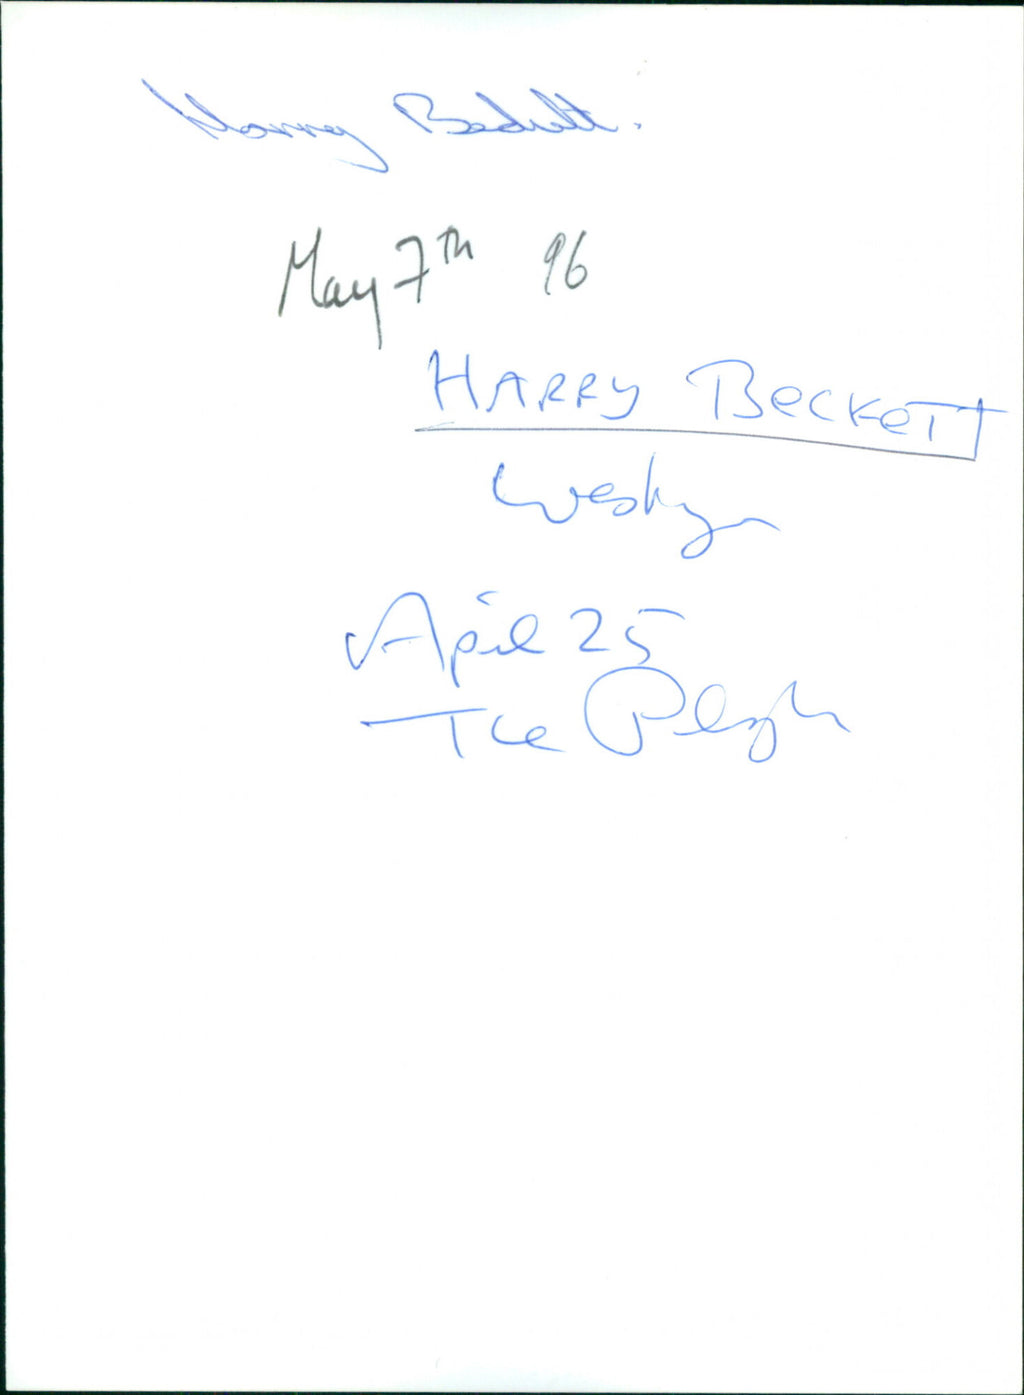 Harry Beckett.
May 7th 96
HARRY BECKETT
April 25
The